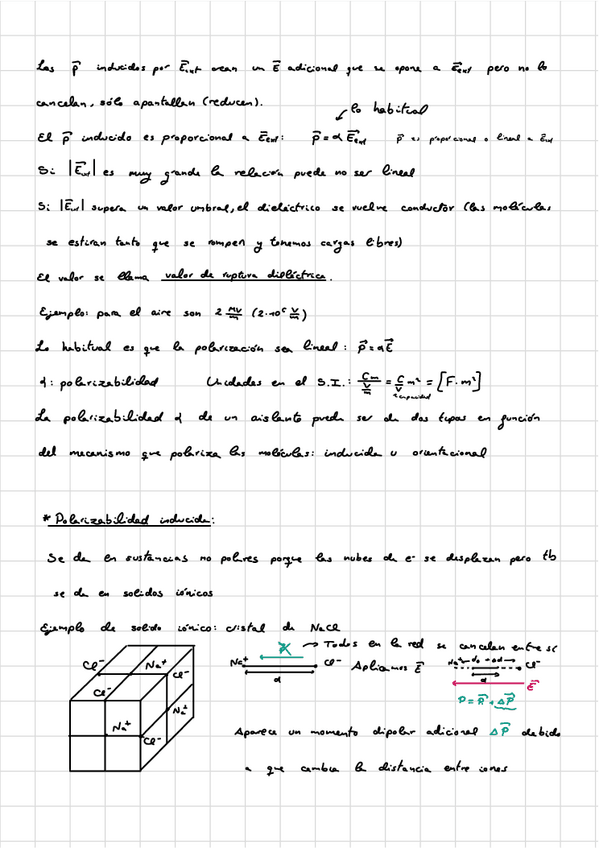 Los p⃗ inducidos por E⃗ext crean un E⃗ adicional que se opone a E⃗ext pero no lo
cancelan, sólo apantallan (reducen).
lo habitual
El p⃗ inducido es proporcional a E⃗ext: p⃗=αE⃗ext p⃗ es proporcional o lineal a Eext
Si |E⃗ext| es muy grande la relación puede no ser lineal
Si |E⃗ext| supera un valor umbral, el dieléctrico se vuelve conductor (las moléculas
se estiran tanto que se rompen y tenemos cargas libres)
El valor se llama valor de ruptura dieléctrica.
Ejemplo: para el aire son 2 MV/m (2·10⁶ V/m)
Lo habitual es que la polarización sea lineal: p⃗=αE⃗
α: polarizabilidad Unidades en el S.I.: Cm/(V/m) = C/V m² = [F·m²]
capacidad
La polarizabilidad α de un aislante puede ser de dos tipos en función
del mecanismo que polariza las moléculas: inducida u orientacional
* Polarizabilidad inducida:
Se da en sustancias no polares porque las nubes de e- se desplazan pero tb
se da en solidos iónicos
Ejemplo de solido iónico: cristal de NaCl
→ Todos en la red se cancelan entre sí
Cl⁻ Na⁺ Cl⁻
Cl⁻
Na⁺
Na⁺ Cl⁻
Na⁺ Cl⁻ Aplicamos E⃗
d
Na⁺ Cl⁻
d
E⃗
+ΔP⃗
Aparece un momento dipolar adicional ΔP⃗ debido
a que cambia la distancia entre iones